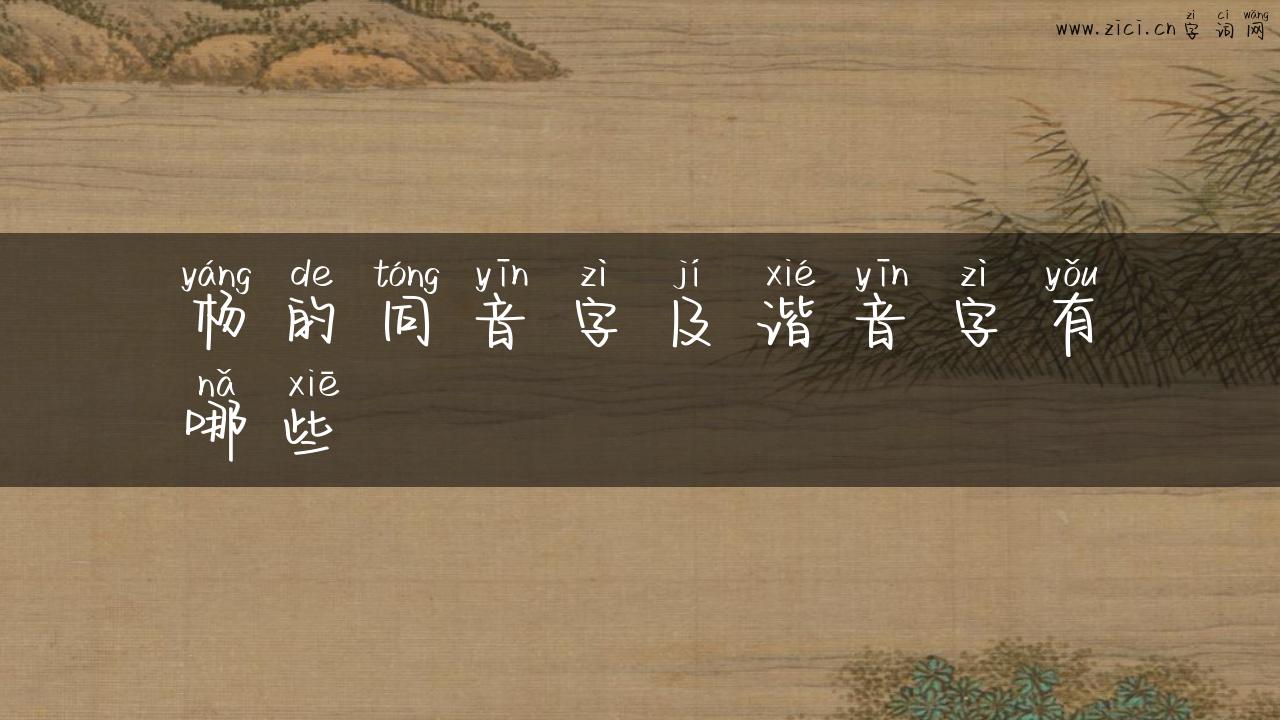 zì cí wǎng
www.zici.cn 字 词 网
yáng de tóng yīn zì jí xié yīn zì yǒu
杨 的 同 音 字 及 谐 音 字 有
nǎ xiē
哪 些